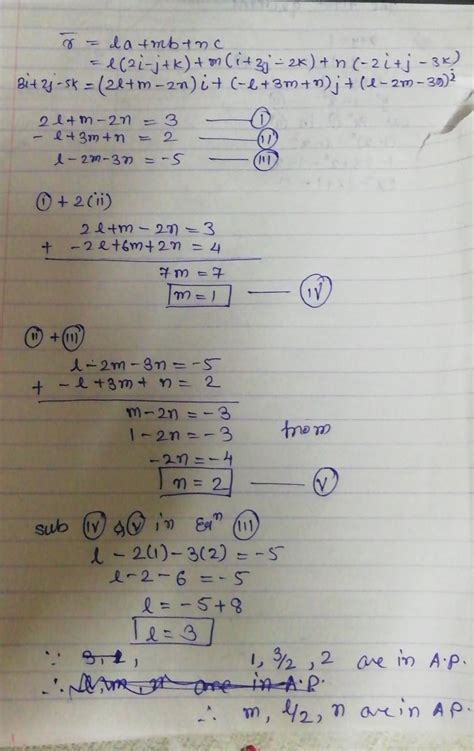 r̄ = la+mb+nc
= l(2i-j+k)+m(i+3j-2k)+n(-2i+j-3k)
3i+2j-5k=(2l+m-2n)i+(-l+3m+n)j+(l-2m-3n)
2l+m-2n = 3 — (i)
-l+3m+n = 2 — (ii)
l-2m-3n = -5 — (iii)
(i) + 2(ii)
2l+m-2n = 3
+ -2l+6m+2n = 4
7m = 7
m = 1 — (iv)
(ii) + (iii)
l-2m-3n = -5
+ -l+3m+n = 2
m-2n = -3
1-2n = -3 from
-2n = -4
n = 2 — (v)
sub (iv) & (v) in Eqⁿ (iii)
l - 2(1) - 3(2) = -5
l-2-6 = -5
l = -5+8
l = 3
∵ 1, 3/2, 2 are in A.P.
∴ l, m, n are in A.P.
∴ m, l/2, n are in A.P.